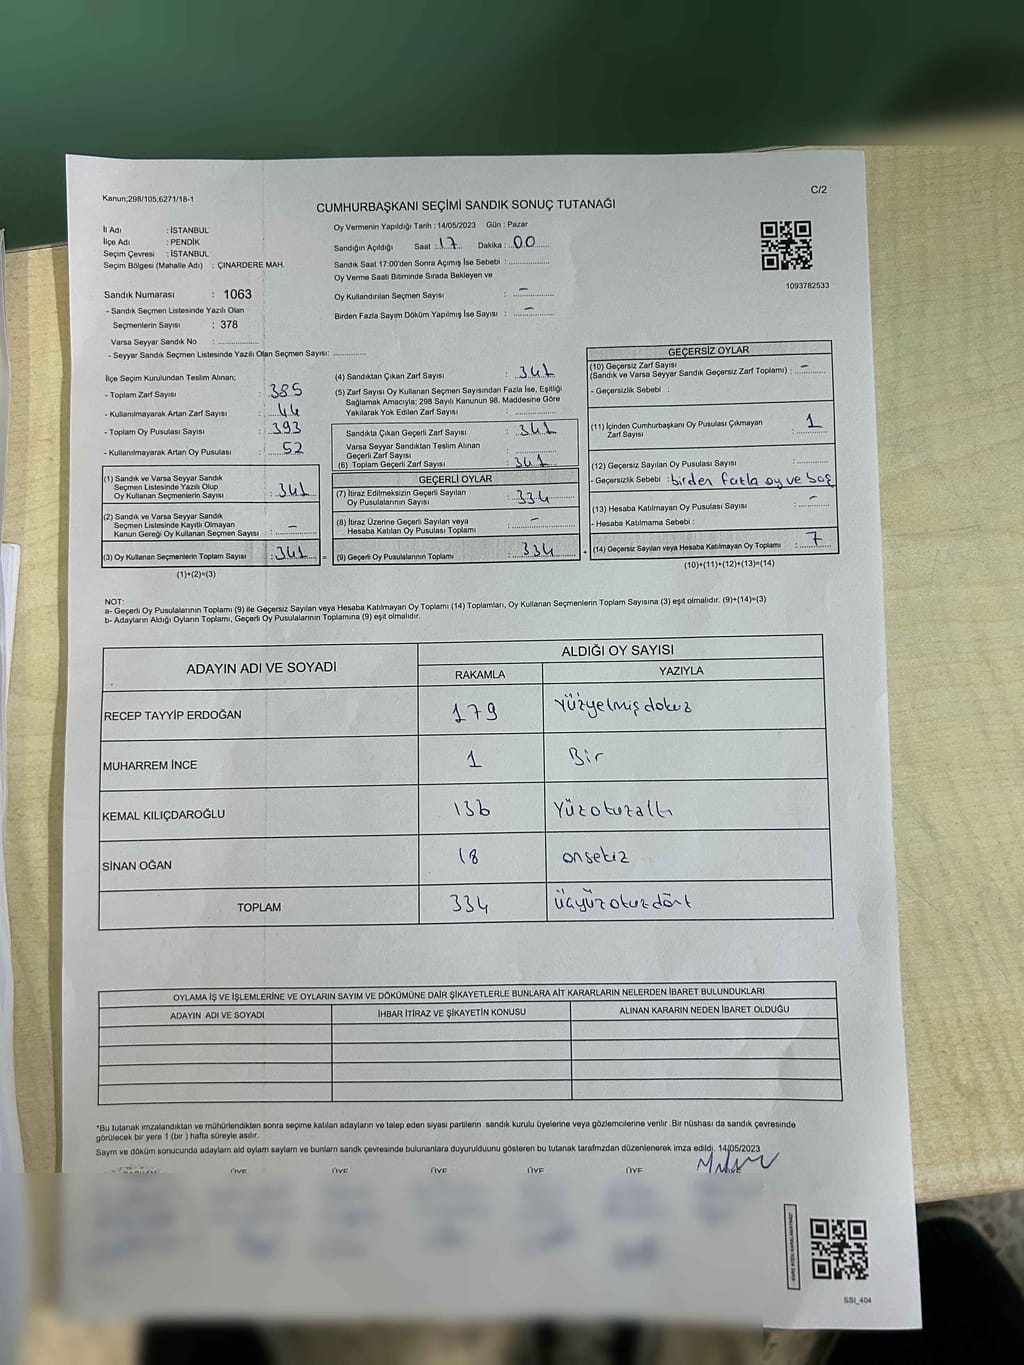 Kanun;298/105;6271/18-1
C/2
CUMHURBAŞKANI SEÇİMİ SANDIK SONUÇ TUTANAĞI
İl Adı : İSTANBUL
İlçe Adı : PENDİK
Seçim Çevresi : İSTANBUL
Seçim Bölgesi (Mahalle Adı) : ÇINARDERE MAH.
Sandık Numarası : 1063
- Sandık Seçmen Listesinde Yazılı Olan
Seçmenlerin Sayısı : 378
Varsa Seyyar Sandık No : ..............
- Seyyar Sandık Seçmen Listesinde Yazılı Olan Seçmen Sayısı: ............
Oy Vermenin Yapıldığı Tarih : 14/05/2023 Gün : Pazar
Sandığın Açıldığı Saat : 17 Dakika : 00
Sandık Saat 17:00'den Sonra Açımış İse Sebebi : ..............
Oy Verme Saati Bitiminde Sırada Bekleyen ve
Oy Kullandırılan Seçmen Sayısı : -
Birden Fazla Sayım Döküm Yapılmış İse Sayısı : -
1093782533
İlçe Seçim Kurulundan Teslim Alınan;
- Toplam Zarf Sayısı : 385
- Kullanılmayarak Artan Zarf Sayısı : 44
- Toplam Oy Pusulası Sayısı : 393
- Kullanılmayarak Artan Oy Pusulası : 52
(1) Sandık ve Varsa Seyyar Sandık
Seçmen Listesinde Yazılı Olup
Oy Kullanan Seçmenlerin Sayısı : 341
(2) Sandık ve Varsa Seyyar Sandık
Seçmen Listesinde Kayıtlı Olmayan
Kanun Gereği Oy Kullanan Seçmen Sayısı : -
(3) Oy Kullanan Seçmenlerin Toplam Sayısı : 341 =
(1)+(2)=(3)
(4) Sandıktan Çıkan Zarf Sayısı : 341
(5) Zarf Sayısı Oy Kullanan Seçmen Sayısından Fazla İse, Eşitliği
Sağlamak Amacıyla; 298 Sayılı Kanunun 98. Maddesine Göre
Yakılarak Yok Edilen Zarf Sayısı : ..............
Sandıkta Çıkan Geçerli Zarf Sayısı : 341
Varsa Seyyar Sandıktan Teslim Alınan
Geçerli Zarf Sayısı : ..............
(6) Toplam Geçerli Zarf Sayısı : 341
GEÇERLİ OYLAR
(7) İtiraz Edilmeksizin Geçerli Sayılan
Oy Pusulalarının Sayısı : 334
(8) İtiraz Üzerine Geçerli Sayılan veya
Hesaba Katılan Oy Pusulası Toplamı : -
(9) Geçerli Oy Pusulalarının Toplamı : 334 +
GEÇERSİZ OYLAR
(10) Geçersiz Zarf Sayısı
(Sandık ve Varsa Seyyar Sandık Geçersiz Zarf Toplamı) : -
- Geçersizlik Sebebi :
(11) İçinden Cumhurbaşkanı Oy Pusulası Çıkmayan
Zarf Sayısı : 1
(12) Geçersiz Sayılan Oy Pusulası Sayısı : ..........
- Geçersizlik Sebebi : birden fazla oy ve boş
(13) Hesaba Katılmayan Oy Pusulası Sayısı : -
- Hesaba Katılmama Sebebi :
(14) Geçersiz Sayılan veya Hesaba Katılmayan Oy Toplamı : 7
(10)+(11)+(12)+(13)=(14)
NOT:
a- Geçerli Oy Pusulalarının Toplamı (9) ile Geçersiz Sayılan veya Hesaba Katılmayan Oy Toplamı (14) Toplamları, Oy Kullanan Seçmenlerin Toplam Sayısına (3) eşit olmalıdır. (9)+(14)=(3)
b- Adayların Aldığı Oyların Toplamı, Geçerli Oy Pusulalarının Toplamına (9) eşit olmalıdır.
ADAYIN ADI VE SOYADI
ALDIĞI OY SAYISI
RAKAMLA YAZIYLA
RECEP TAYYİP ERDOĞAN 179 Yüzyetmiş dokuz
MUHARREM İNCE 1 Bir
KEMAL KILIÇDAROĞLU 136 Yüzotuzaltı
SİNAN OĞAN 18 onsekiz
TOPLAM 334 üçyüzotuzdört
OYLAMA İŞ VE İŞLEMLERİNE VE OYLARIN SAYIM VE DÖKÜMÜNE DAİR ŞİKAYETLERLE BUNLARA AİT KARARLARIN NELERDEN İBARET BULUNDUKLARI
ADAYIN ADI VE SOYADI İHBAR İTİRAZ VE ŞİKAYETİN KONUSU ALINAN KARARIN NEDEN İBARET OLDUĞU
*Bu tutanak imzalandıktan ve mühürlendikten sonra seçime katılan adayların ve talep eden siyasi partilerin sandık kurulu üyelerine veya gözlemcilerine verilir .Bir nüshası da sandık çevresinde
görülecek bir yere 1 (bir ) hafta süreyle asılır.
Saym ve döküm sonucunda adaylam ald oylam saylam ve bunlarn sandk çevresinde bulunanlara duyurulduunu gösteren bu tutanak tarafmzdan düzenlenerek imza edildi. 14/05/2023
ÜYE ÜYE ÜYE ÜYE ÜYE
SSI_404